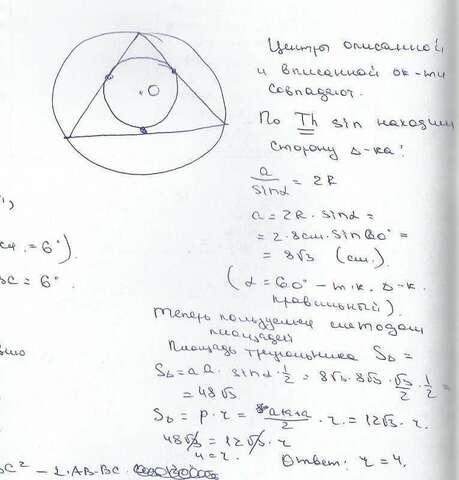 O
Центры описанной
и вписанной ок-ти
совпадают.
По Th sin находим
сторону Δ-ка:
a/sinα = 2R
a = 2R · sinα =
= 2 · 8см · sin 60° =
= 8√3 (см).
(α = 60° – т.к. Δ-к.
правильный).
Теперь пользуемся методом
площадей
Площадь треугольника SΔ =
SΔ = a a · sinα · 1/2 = 8√3 · 8√3 · √3/2 · 1/2 =
= 48√3
SΔ = p · r = a+a+a/2 · r = 12√3 · r.
48√3 = 12√3 · r
4 = r.
Ответ: r = 4.
. = 6°).
BC = 6°
C² – 2·AB·BC ·